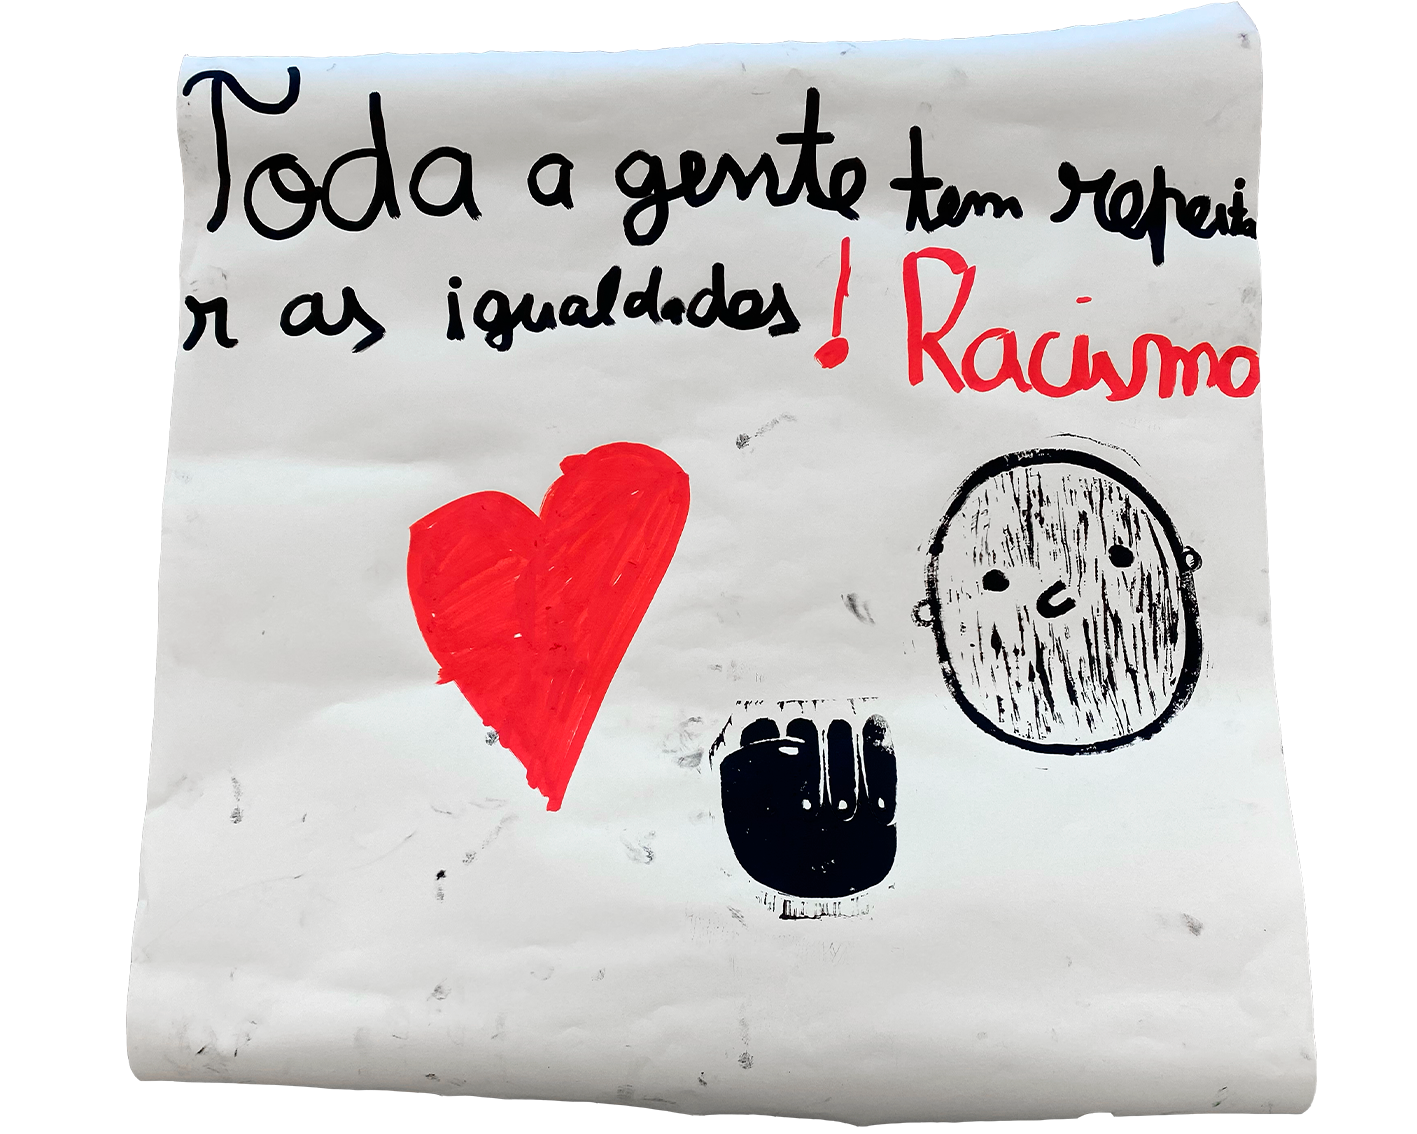 Toda a gente tem repeita
r as igualdades! Racismo